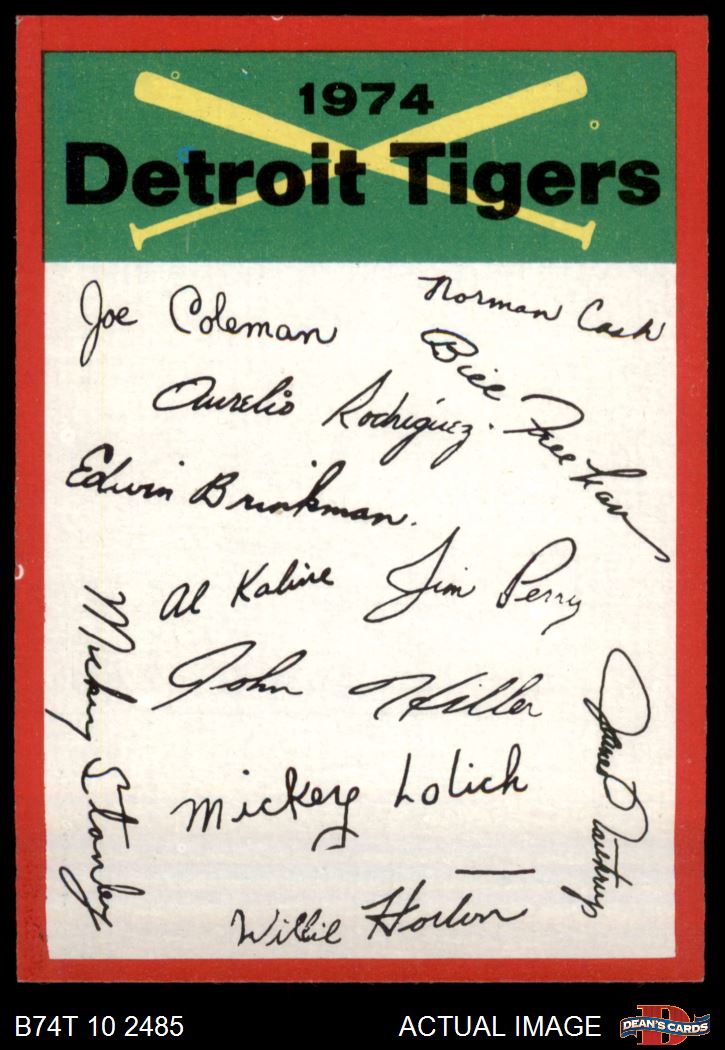 1974
Detroit Tigers
Joe Coleman
Norman Cash
Bill Freehan
Aurelio Rodriguez.
Edwin Brinkman.
Al Kaline
Jim Perry
John Hiller
Mickey Stanley
James Northrup
Mickey Lolich
Willie Horton
B74T 10 2485
ACTUAL IMAGE
D
DEAN'S CARDS